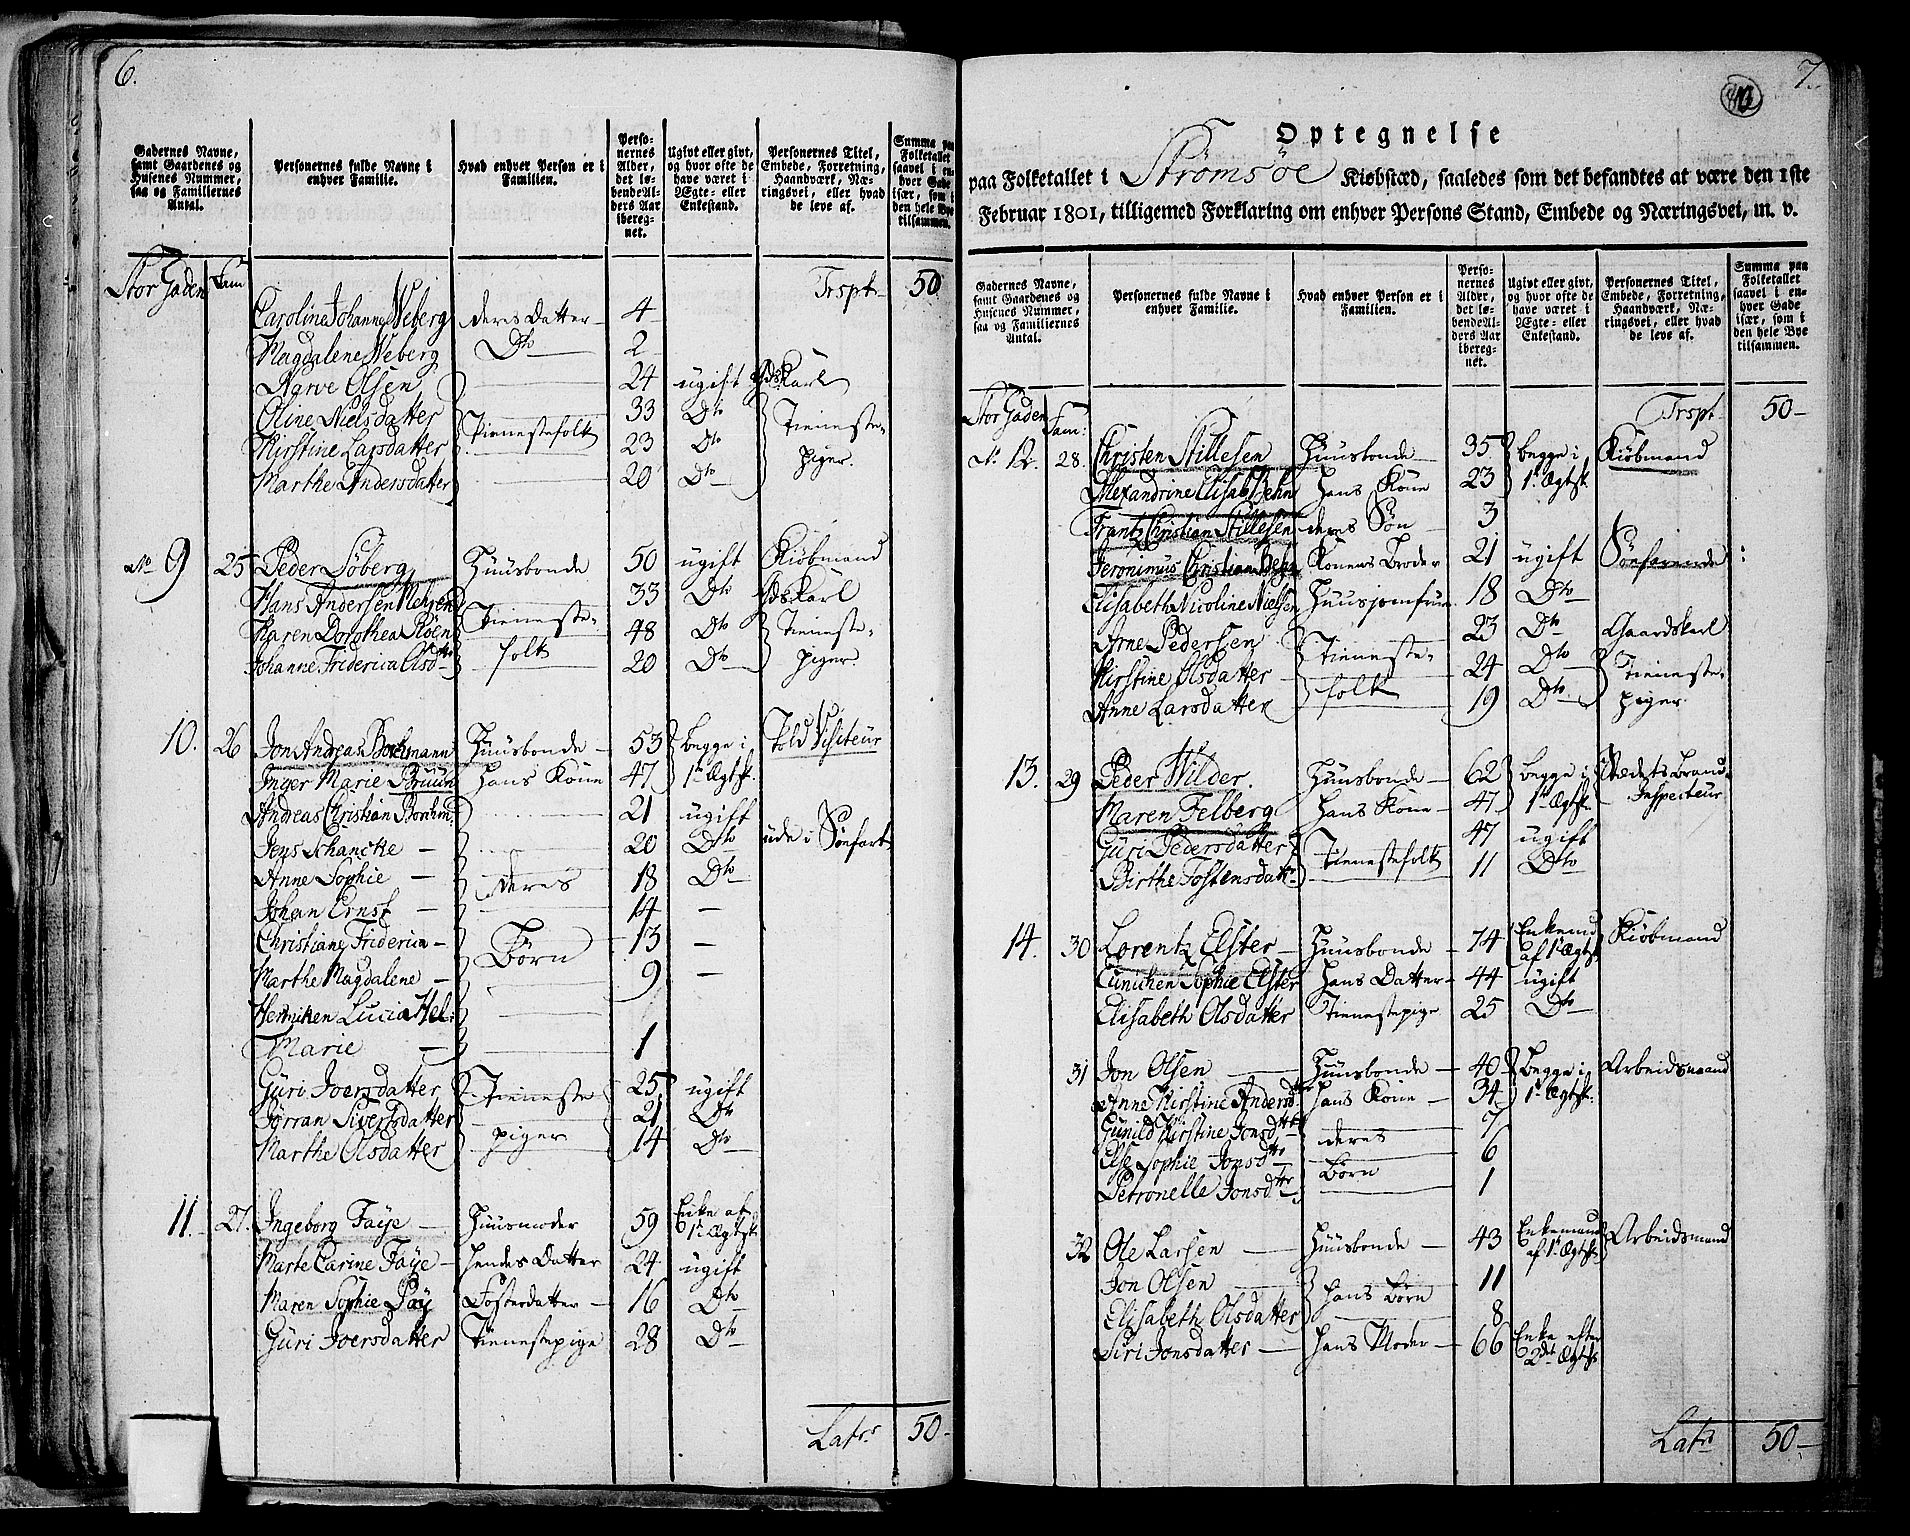 6.
Gadernes Navne, samt Gaardenes og Husenes Nummer, saa og Familiernes Antal.
Personernes fulde Navne i enhver Familie.
Hvad enhver Person er i Familien.
Personernes Alder, det løbende Alders Aar iberegnet.
Ugivt eller givt, og hvor ofte de have været i Ægte- eller Enkestand.
Personernes Titel, Embede, Forretning, Haandværk, Næringsvei, eller hvad de leve af.
Summa paa Folketallet saavel i enhver Gade især, som i den hele Bye tilsammen.
Stor Gaden Fam Trspt 50
Caroline Johanne Neberg deres Datter 4
Magdalene Neberg Dto 2
Narve Olsen 24 ugift Gds Karl
Oline Nielsdatter Tienestefolk 33 Dto Tieneste-
Kirstine Larsdatter 23 Dto piger.
Marthe Andersdatter 20 Dto
No 9 25 Peder Söberg Huusbonde 50 ugift Kiöbmand
Hans Andersen 33 Dto Gds Karl
Karen Dorothea Röen Tieneste- 48 Dto Tieneste-
Johanne Friderica Olsdtr folk 20 Dto piger.
10. 26 Jon Andreas Borchmann Huusbonde 53 begge i Told Visiteur
Inger Marie Bruun hans Kone 47 1te Ægtsk.
Andreas Christian Borchm. 21 ugift
Jens Schancke 20 Dto ude i Sönfart
Anne Sophie deres 18 Dto
Johan Ernst 14
Christiane Friderica Börn 13
Marthe Magdalene 9
Henniken Lucia Hel:
Marie 1
Güri Joersdatter Tieneste 25 ugift
Jörran Sivertsdatter 21 Dto
Marthe Olsdatter piger 14 Dto
11. 27. Ingeborg Faÿe Huusmoder 59 Enke af 1te Ægtsk
Marte Carine Faÿe hendes Datter 24 ugift
Maren Sophie Paÿ Fosterdatter 16 Dto
Güri Joersdatter Tienestepige 28 Dto
Latrs 50
7.
Optegnelse
paa Folketallet i Strömsöe Kiøbstæd, saaledes som det befandtes at være den 1ste
Februar 1801, tilligemed Forklaring om enhver Persons Stand, Embede og Næringsvei, m. v.
Gadernes Navne, samt Gaardenes og Husenes Nummer, saa og Familiernes Antal.
Personernes fulde Navne i enhver Familie.
Hvad enhver Person er i Familien.
Personernes Alder, det løbende Alders Aar iberegnet.
Ugivt eller givt, og hvor ofte de have været i Ægte- eller Enkestand.
Personernes Titel, Embede, Forretning, Haandværk, Næringsvei, eller hvad de leve af.
Summa paa Folketallet saavel i enhver Gade især, som i den hele Bye tilsammen.
Stor Gaden Fam: Trspt 50
No 12. 28. Christen Stillesen Huusbonde 35 begge i Kiöbmand
Alexandrine Elisab Behn hans Kone 23 1te Ægtsk
Frantz Christian Stillesen deres Sön 3
Jeronimus Christian Behn Konens Broder 21 ugift Söefarende
Elisabeth Nicoline Nielsen Huusjomfrue 18 Dto
Arne Pedersen Tieneste- 23 Dto Gaardskarl
Kirstine Olsdatter 24 Dto Tieneste-
Anne Larsdatter folk 19 Dto piger.
13. 29 Peder Wilder. Huusbonde 62 begge i Stædets Brand
Maren Felberg hans Kone 47 1te Ægtsk. Inspecteur
Güri Pedersdatter Tienestefolk 47 ugift
Birthe Tostensdatr 11 Dto
14. 30 Lorentz Elster Huusbonde 74 Enkemd af 1te Ægtsk Kiöbmand
Cunichen Sophie Elster hans Datter 44 ugift
Elisabeth Olsdatter Tienestepige 25 Dto
31 Jon Olsen Huusbonde 40 begge i Arbeidsmand
Anne Kirstine Andersdtr hans Kone 34 1te Ægtsk:
Gunild Kirstine Jonsdtr deres 7
Else Sophie Jonsdtr 6
Petronelle Jonsdtr Börn 1
32 Ole Larsen Huusbonde 43 Enkemand af 1te Ægtsk Arbeidsmand
Jon Olsen hans Börn 11
Elisabeth Olsdatter 8
Siri Jonsdatter hans Moder 66 Enke efter 2det Ægtsk
Latrs 50